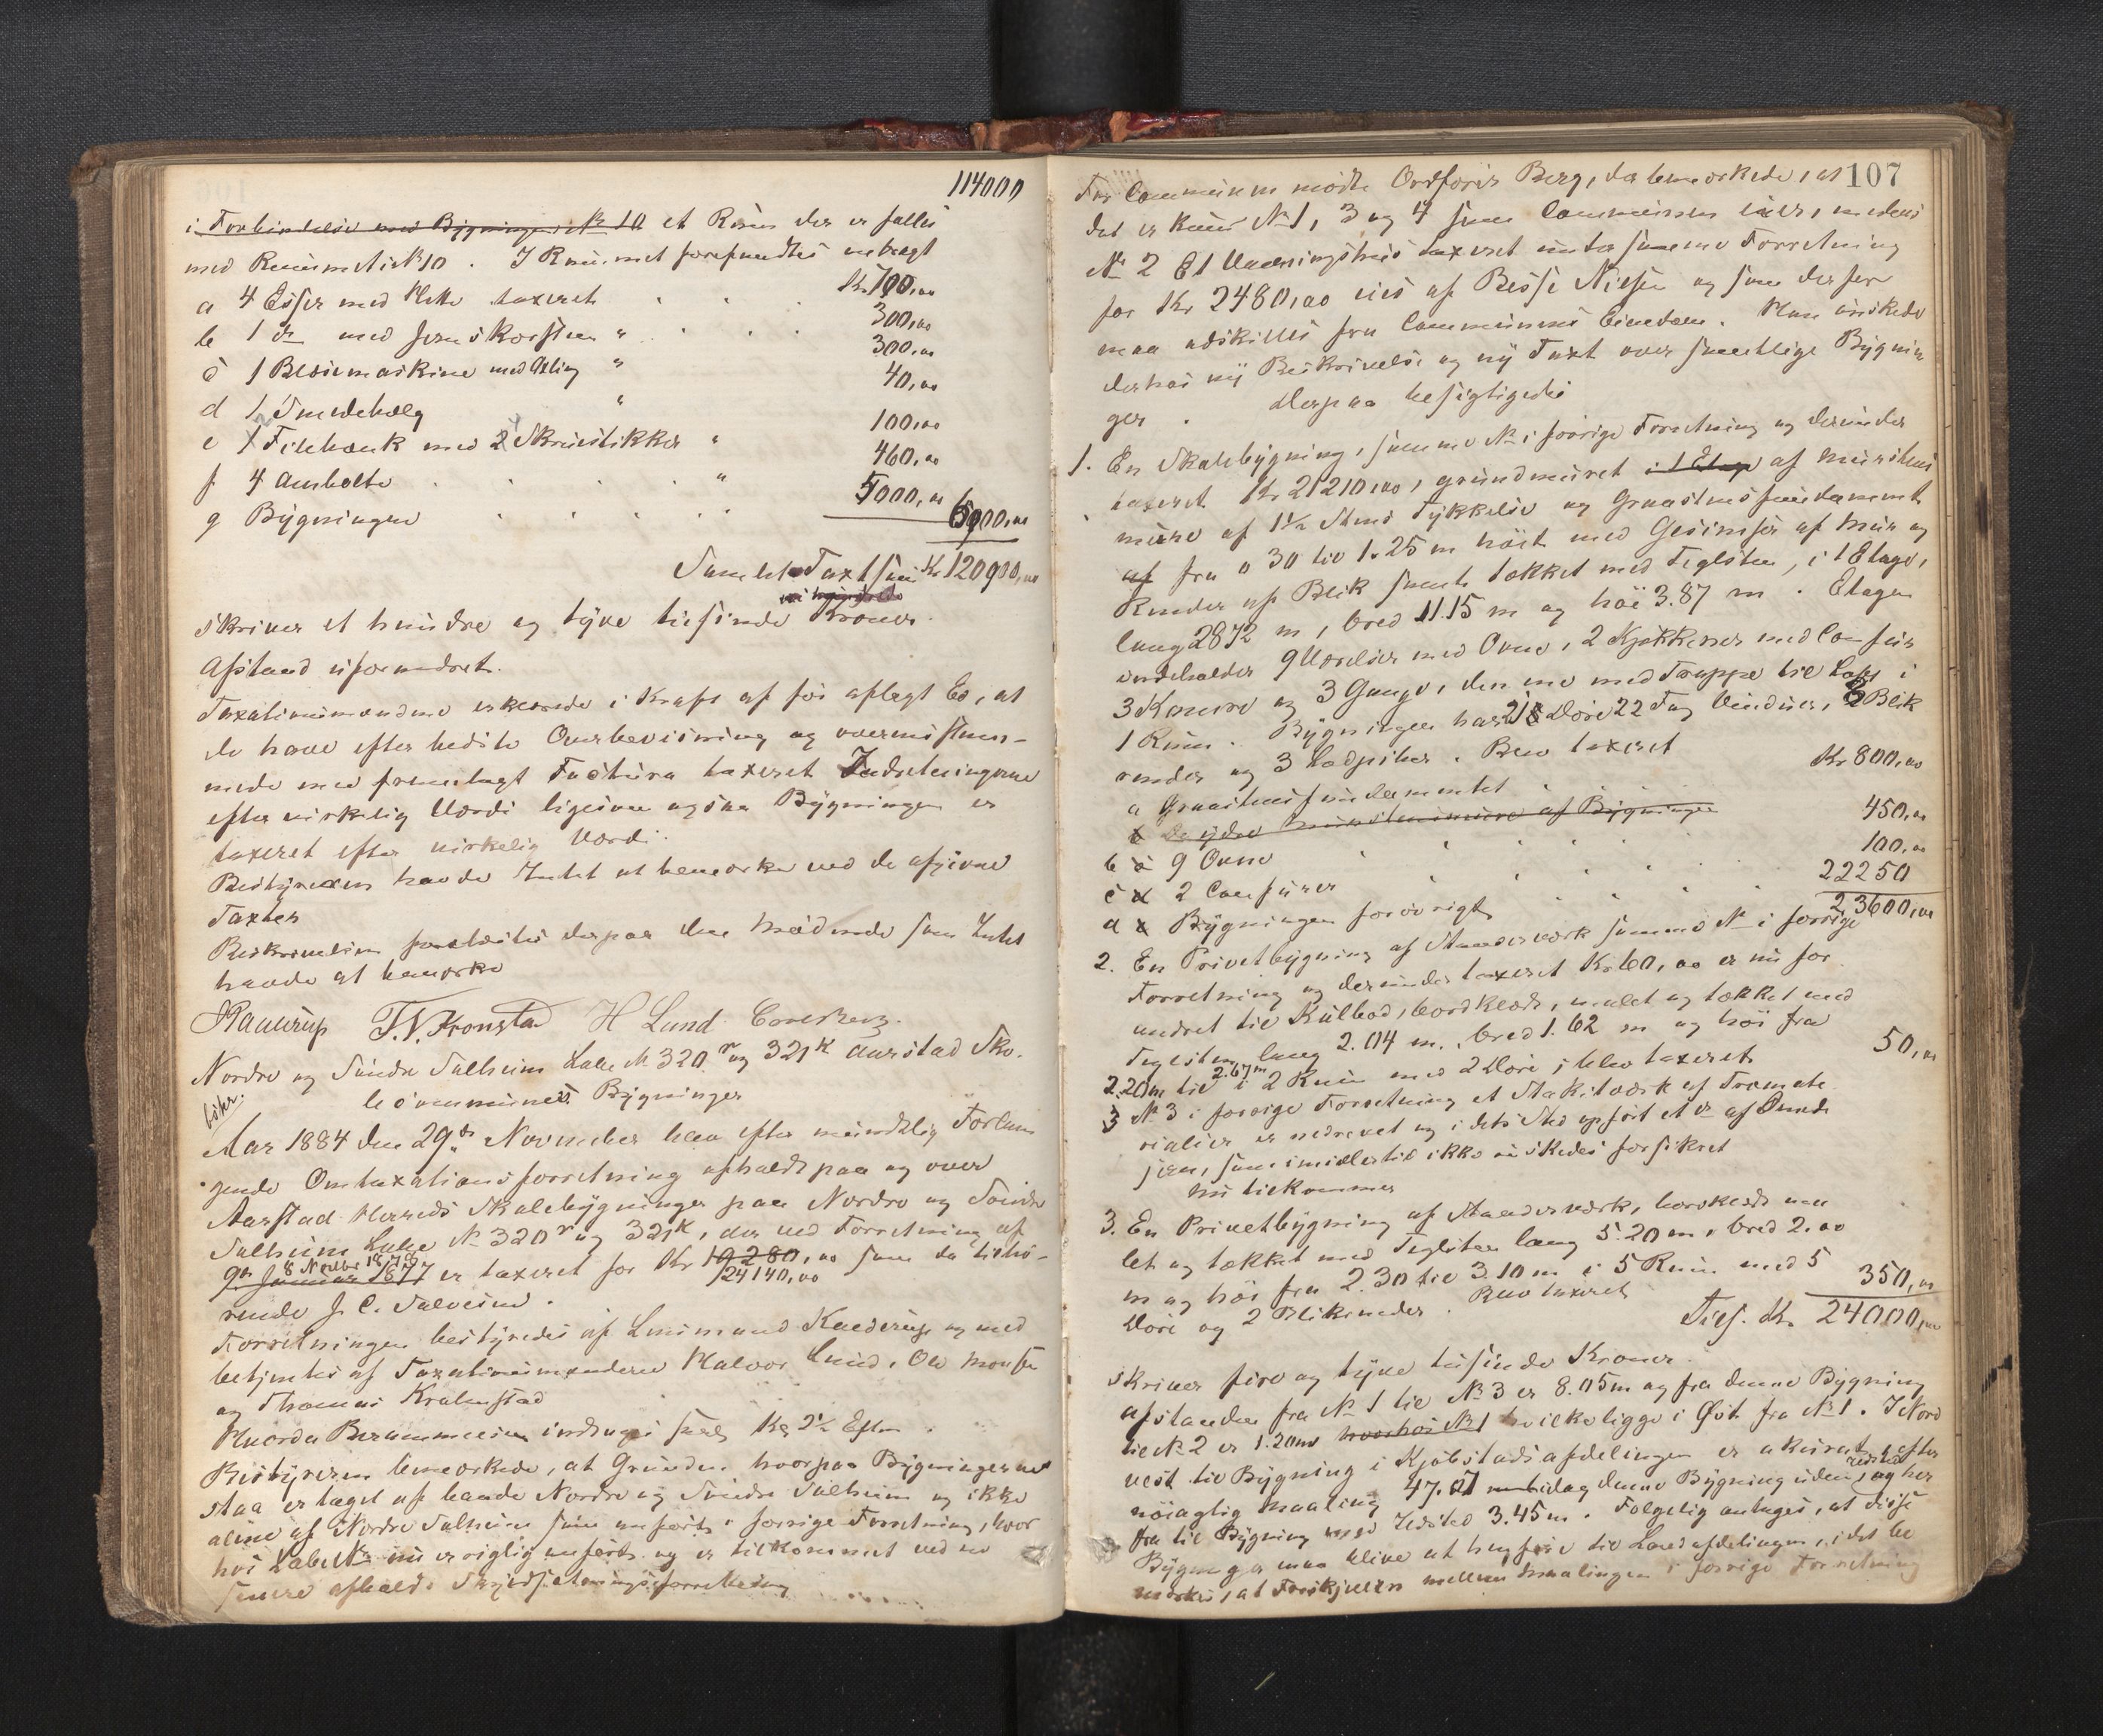 114000
i Forbindelse med Bygningen № 10 et Rum der er fælles
med Rummet i № 10. I Rummet forefandtes anbragt
a 4 Esser med Hette taxeret Kr. 700,00
b 1 do med Jernskorsten " 300,00
c 1 Blæsemaskine med Axling " 300,00
d 1 Smedebælg " 40,00
e 1 Filebænk med 2 Skruestikker " 100,00
f 4 Ambolte " 460,00
g Bygningen 5000,00
6900,00
Samlet Taxtsum Kr 120900,00
skriver et hundre og tyve tusinde Kroner.
Afstand uforandret.
Taxationsmændene erklærede i Kraft af før aflagt Ed, at
de have efter bedste Overbevisning og overensstem-
mede med fremlagt Factura taxeret Indretningerne
efter virkelig Værdi ligesom ogsaa Bygningen er
taxeret efter virkelig Værdi.
Bestyreren havde Intet at bemærke ved de afgivne
Taxter
Beskrivelsen forelæstes derpaa den mødende som Intet
havde at bemærke
Kaurup T. V. Kronstad H Lund
Nordre og Søndre Solheim Labe № 320 r og 321 k Aarstad Sko-
lecommunes Bygninger
Aar 1884 den 29de November blev efter mundtlig Forlan-
gende Omtaxationsforretning afholdt paa og over
Aarstad Herreds Skolebygninger paa Nordre og Søndre
Solheim Labe № 320 r og 321 k, der ved Forretning af
8 Novbr 1878
9de Januar 1877 er taxeret for Kr 19280,00 som da tilhø-
24140,00
rende J. C. Salvesen.
Forretningen bestyredes af Lensmand Kaurup og med
betjentes af Taxationsmændene Halvor Lund, Ole Monsen
og Thomas Kronstad
Hvorda Berammelsen indtages for Kl. 2½ Eftm.
Bestyreren bemærkede, at Grunden hvorpaa Bygningerne
staa er taget af baade Nordre og Søndre Solheim og ikke
alene af Nordre Solheim som anført i forrige Forretning, hvor
hos Labe № nu er rigtig anført og er tilkommet ved en
senere afholdt Skyldsætningsforretning
107
For Communen mødte Ordfører Berg, der bemærkede, at
det er kun № 1, 3 og 4 som Communen eier, medens
№ 2 Et Vaaningshus taxeret under samme Forretning
for Kr 2480,00 eies af Besse Nielsen og som derfor
maa adskilles fra Communens Eiendom. Han ønskede
derhos ny Beskrivelse og ny Taxt over samtlige Bygnin
ger. Derpaa besigtigedes
1. En Skolebygning, samme № i forrige Forretning og derunder
taxeret Kr 21210,00, grundmuret i 1 Etage af Murstens
mure af 1½ Stens Tykkelse og Graastensfundament
af fra 0 30 til 1.25 m høit med Gesimser af Mur og
Render af Blik samt tækket med Teglsten, i 1 Etage,
lang 28 72 m, bred 11.15 m og høi 3.87 m. Etagen
indeholder 9 Værelser med Ovne, 2 Kjøkkener med Comfur
3 Kamre og 3 Gange, den ene med Trappe til Loft i
1 Rum. Bygningen har 21 Døre 22 Fag Vinduer, 2 Blik
render og 3 Lodpiber. Blev taxeret
a Graastensfundamentet Kr 800,00
b De ydre Murstensmure af Bygningen
b c 9 Ovne 450,00
c d 2 Comfurer 100,00
d e Bygningen forøvrigt 22250
23600,00
2. En Privetbygning af Standerværk samme № i forrige
Forretning og derunder taxeret Kr 60,00 er nu for
andret til Kulbod, bordklædt, malet og tækket med
Teglsten, lang 2.04 m. bred 1.62 m og høi fra
2.20m til 2.67m i 2 Rum med 2 Døre, blev taxeret 50,00
3 № 3 i forrige Forretning et Stakitværk af Tremate-
rialier er nedrevet og i dets Sted opført et do af Smede
jern, som imidlertid ikke ønskedes forsikret
nu tilkommer
3. En Privetbygning af Standerværk, bordklædt ma
let og tækket med Teglsten lang 5.20 m, bred 2.00
m og høi fra 2.30 til 3.10 m i 5 Rum med 5
Døre og 2 Blikrender. Blev taxeret 350,00
Tils. Kr. 24000,00
skriver fire og tyve tusinde Kroner.
Afstanden fra № 1 til № 3 er 8.05m og fra denne Bygning
til № 2 er 1.20m hvorhos № 1 hvilke ligge i Øst fra № 1. I Nord
vest til Bygning i Kjøbstadsafdelingen er akurat efter
nøiagtig Maaling 47.07 m bidag denne Bygning uden og her
fra til Bygning med Ildsted 3.45m. Følgelig antages, at disse
Bygninger maa blive at henføre til Landafdelingen, idet be
mærkes, at Forskjellen mellem Maalingen i forrige Forretning